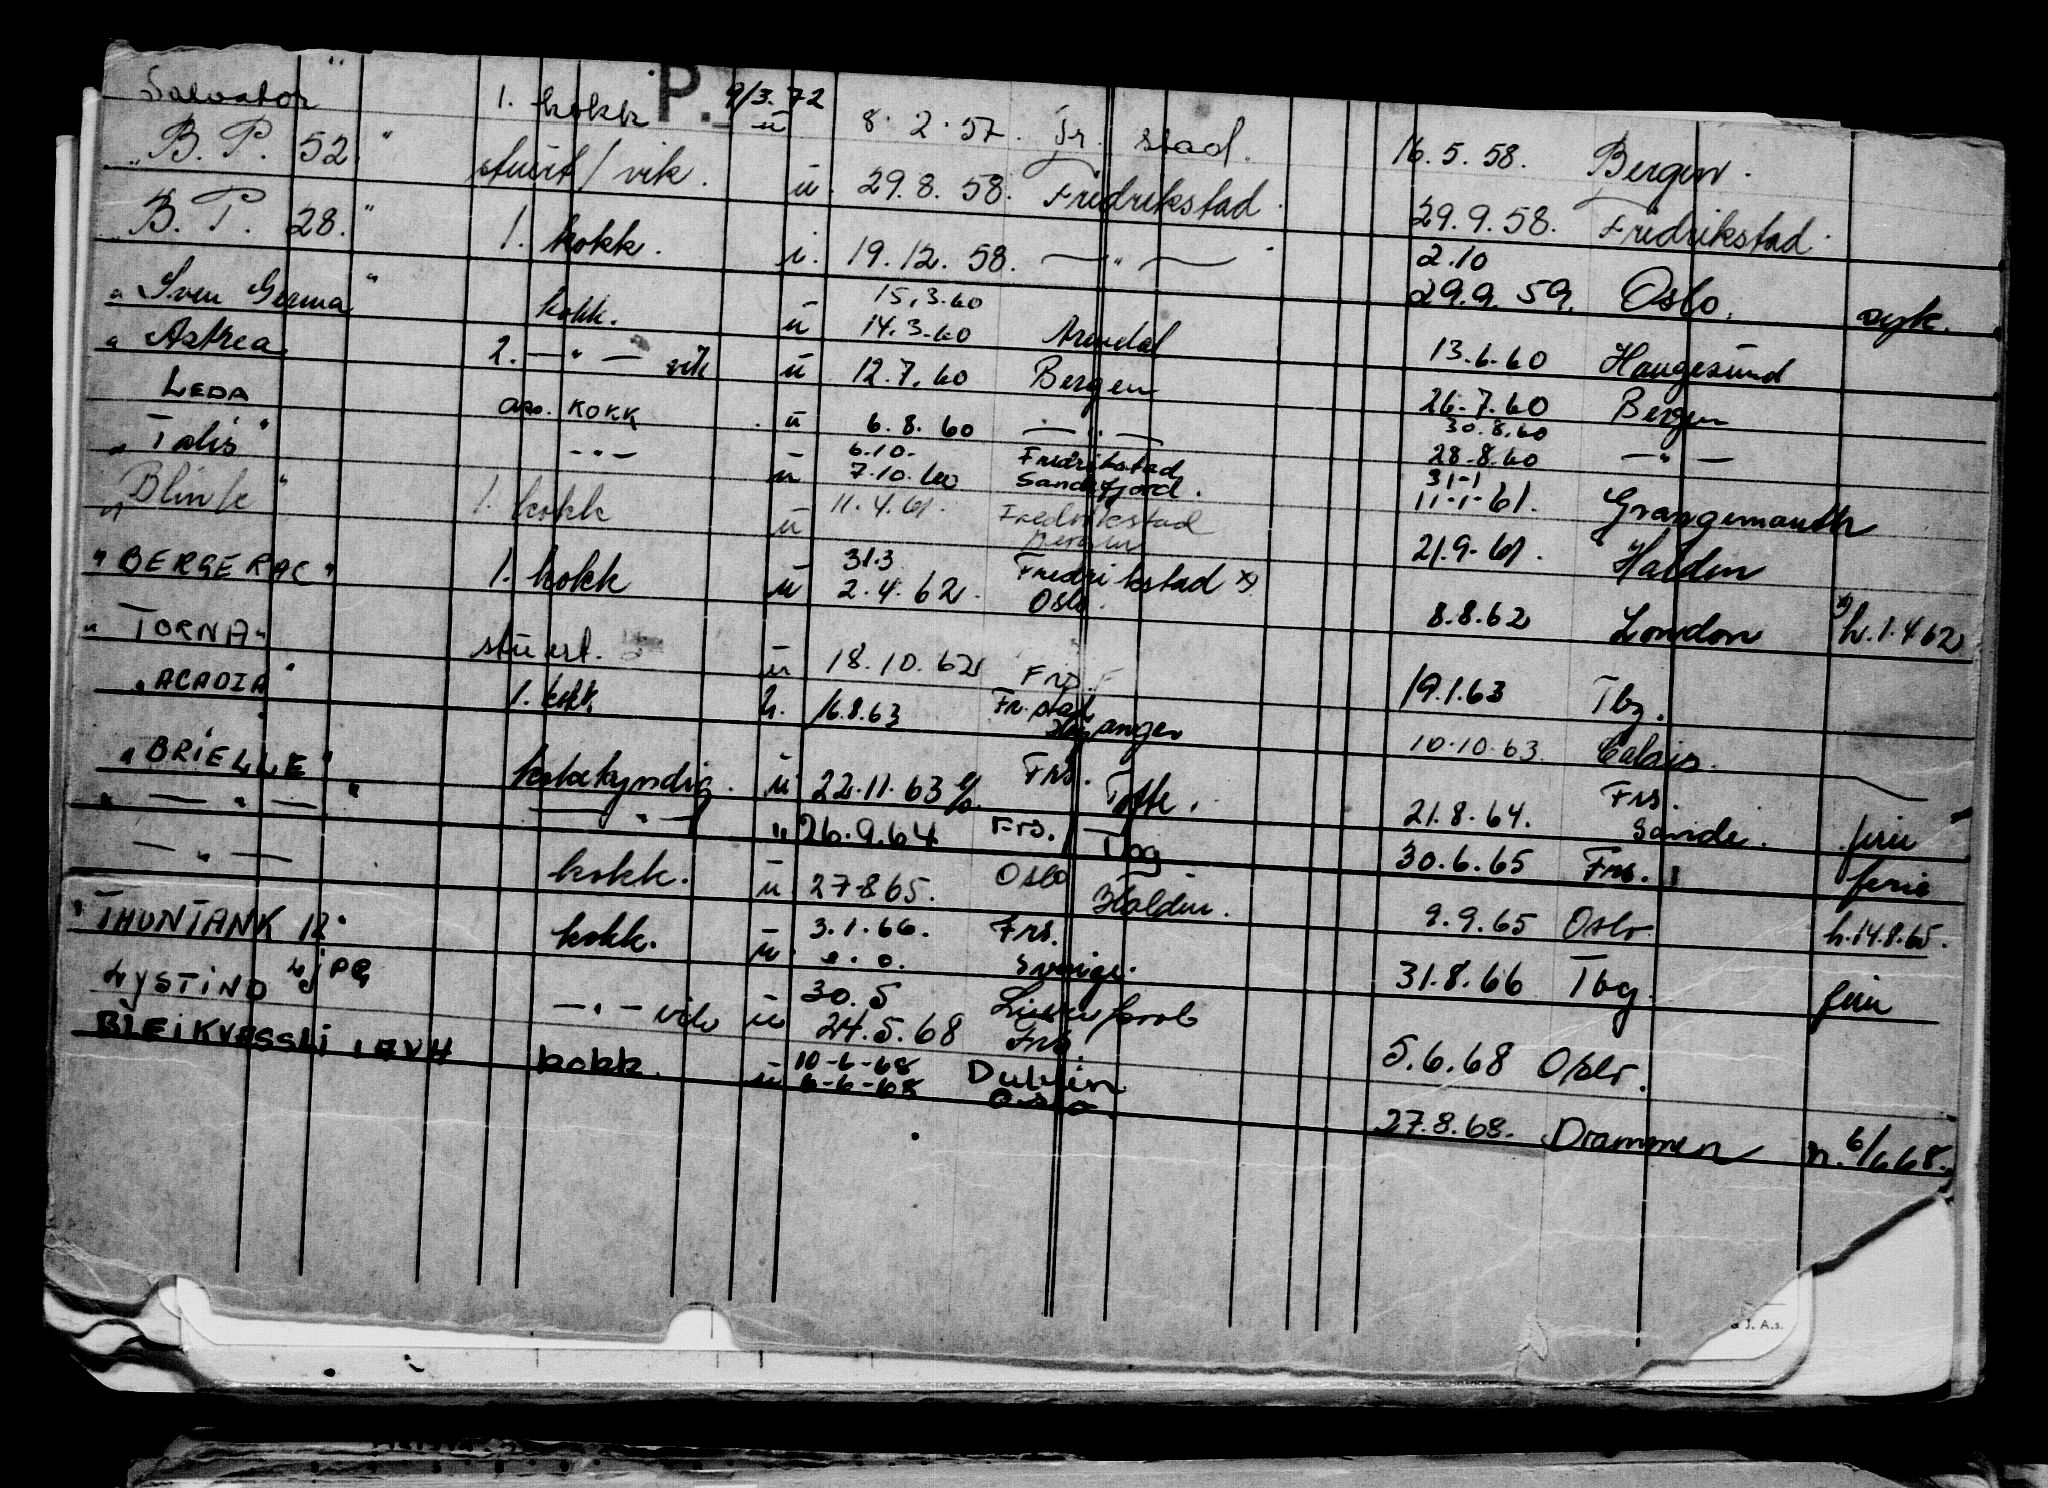 P. 9/3.72
Salvator" 1. kokk u 8.2.57. Fr. stad. 16.5.58. Bergen.
"B.P. 52." stuert/vik. u. 29.8.58. Fredrikstad. 29.9.58. Fredrikstad.
B.P. 28." 1. kokk. u. 19.12.58. —"— 2.10
29.9.59. Oslo. syk.
15.3.60
"Sven Germa" kokk. u 14.3.60 Arendal 13.6.60 Haugesund
"Astrea 2. —"— vik u 12.7.60 Bergen 26.7.60 Bergen
30.8.60
LEDA ass. KOKK u 6.8.60 —"— 28.8.60 —"—
6.10. Fredrikstad 31-1
"Talis" —"— u 7.10.60 Sandefjord. 11-1-61. Grangemouth
"Blink" 1. kokk u 11.4.61. Fredrikstad
Bergen 21.9.61. Halden
31.3 Fredrikstad x)
"BERGERAC" 1. kokk u 2.4.62. Oslo. 8.8.62 London x) h.1.4.62
"TORNA" stuert. u 18.10.62 Frs. 19.1.63 Tbg.
"ACADIA" 1. kokk h. 16.8.63 Fr. stad
10.10.63. Calais.
"BRIELLE" kokekyndig. u 22.11.63 Frs. Tofte. 21.8.64. Frs.
Sande. ferie
"—"—" —"— " 26.9.64 Frs. / Tbg 30.6.65 Frs. ferie
—"— kokk. u. 27.8.65. Oslo Halden. 9.9.65 Oslo. h.14.8.65.
"THUNTANK 12" kokk. u. 3.1.66. Frs.
Sverige. 31.8.66 Tbg. ferie
30.5
LYSTIND LJPG —"— vik u 24.5.68 Frs. 5.6.68 Oslo.
10-6-68 Dublin
BLEIKVASSLI kokk. u 6-6-68 Oslo 27.8.68. Drammen h. 6/6 68.
J. A.s.